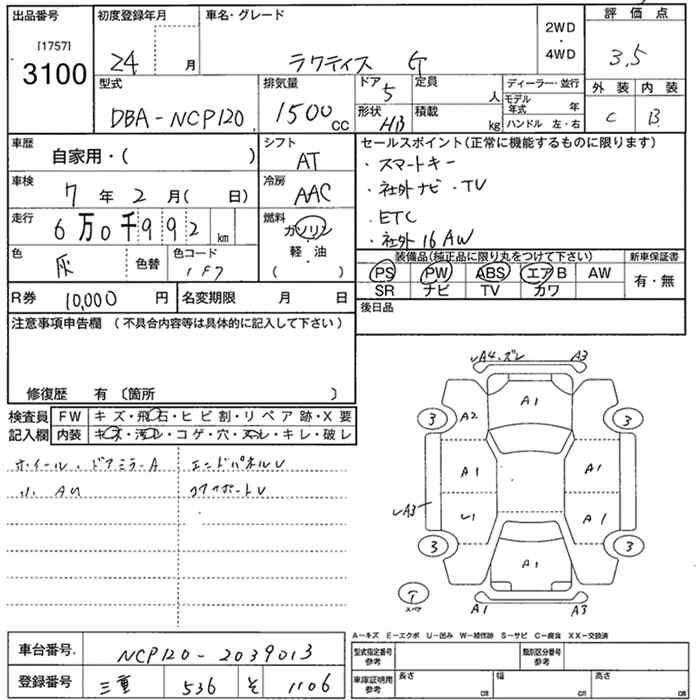 出品番号
[1757]
3100
初度登録年月
24 月
車名・グレード
ラクティス G
2WD
・
4WD
評価点
3.5
外装 内装
C B
型式
DBA-NCP120
排気量
1500 CC
ドア 5
形状 HB
定員 人
積載 kg
ディーラー・並行
モデル年式 年
ハンドル 左・右
車歴 自家用・( )
シフト
AT
車検 7年2月( 日)
冷房
AAC
走行 6万0千992 km
燃料
ガソリン
・
軽油
( )
色 灰 色替
色コード
1F7
R券 10,000 円
名変期限 月 日
セールスポイント(正常に機能するものに限ります)
・スマートキー
・社外ナビ・TV
・ETC
・社外16AW
装備品(純正品に限り丸をつけて下さい)
PS PW ABS エアB AW
SR ナビ TV カワ
新車保証書
有・無
後日品
注意事項申告欄(不具合内容等は具体的に記入して下さい)
修復歴 有 〔箇所 〕
検査員
記入欄
FW キズ・飛石・ヒビ割・リペア跡・X要
内装 キズ・汚レ・コゲ・穴・スレ・キレ・破レ
ホイール、ドアミラーA エンドパネルU
小 AU コアサポートU
A4.ズレ A3
A1
3 A2 3
A1 A1
A3 U1 A1
3 A1 3
T
スペア
A1 A3
A-キズ E-エクボ U-凹み W-補修跡 S-サビ C-腐食 XX-交換済
車台番号 NCP120-2039013
登録番号 三重 536 そ 1106
型式指定番号
参考
類別区分番号
参考
車庫証明用
参考
長さ cm
幅 cm
高さ cm